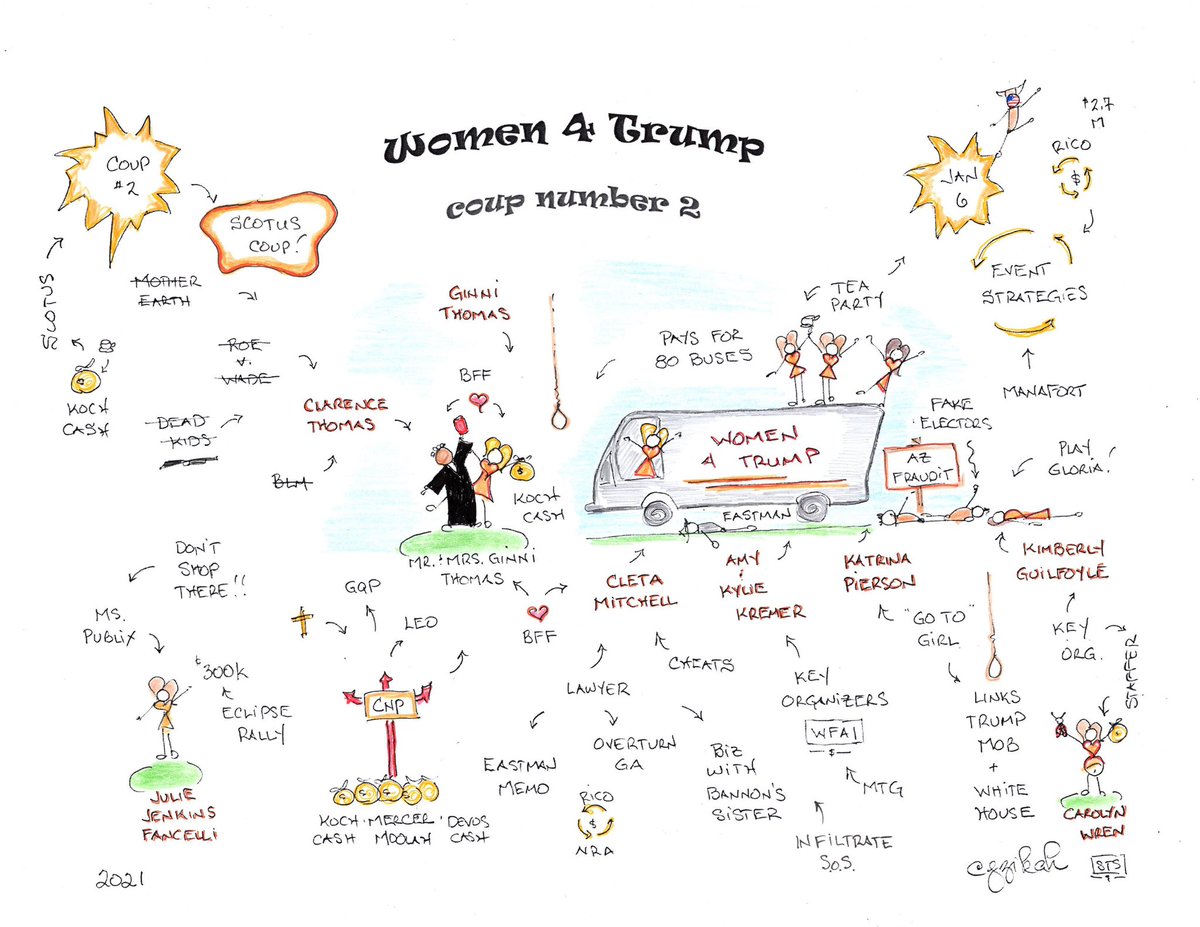 Women 4 Trump
coup number 2
COUP
#2
SCOTUS
COUP!
SCOTUS
MOTHER
EARTH
ROE
v.
WADE
KOCH
CASH
DEAD
KIDS
BLM
CLARENCE
THOMAS
GINNI
THOMAS
BFF
KOCH
CASH
MR. & MRS. GINNI
THOMAS
PAYS FOR
80 BUSES
TEA
PARTY
WOMEN
4 TRUMP
EASTMAN
JAN
6
$2.7
M
RICO
$
EVENT
STRATEGIES
MANAFORT
FAKE
ELECTORS
AZ
FRAUDIT
PLAY
GLORIA!
CLETA
MITCHELL
AMY
&
KYLIE
KREMER
KATRINA
PIERSON
KIMBERLY
GUILFOYLE
DON'T
SHOP
THERE!!
MS.
PUBLIX
$300K
ECLIPSE
RALLY
JULIE
JENKINS
FANCELLI
2021
GQP
LEO
CNP
KOCH
CASH
MERCER
MOOLAH
DEVOS
CASH
BFF
LAWYER
CHEATS
EASTMAN
MEMO
OVERTURN
GA
BIZ
WITH
BANNON'S
SISTER
RICO
$
NRA
KEY
ORGANIZERS
WFAI
$
MTG
INFILTRATE
S.O.S.
"GO TO"
GIRL
LINKS
TRUMP
MOB
+
WHITE
HOUSE
KEY
ORG.
STAFFER
CAROLYN
WREN
STS